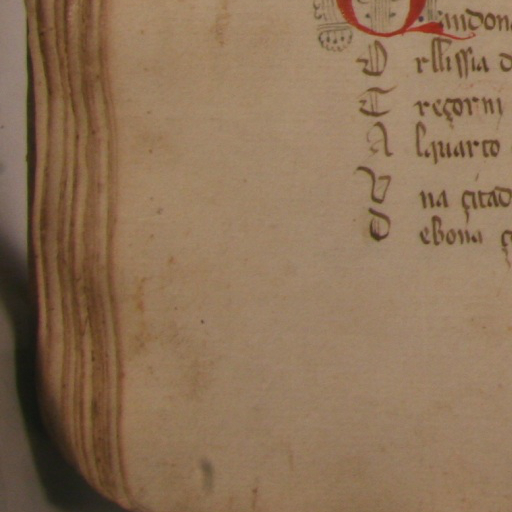 Quandon
D rllissia d
T reçorni
A lquarto
U na çitad
D ebona ç